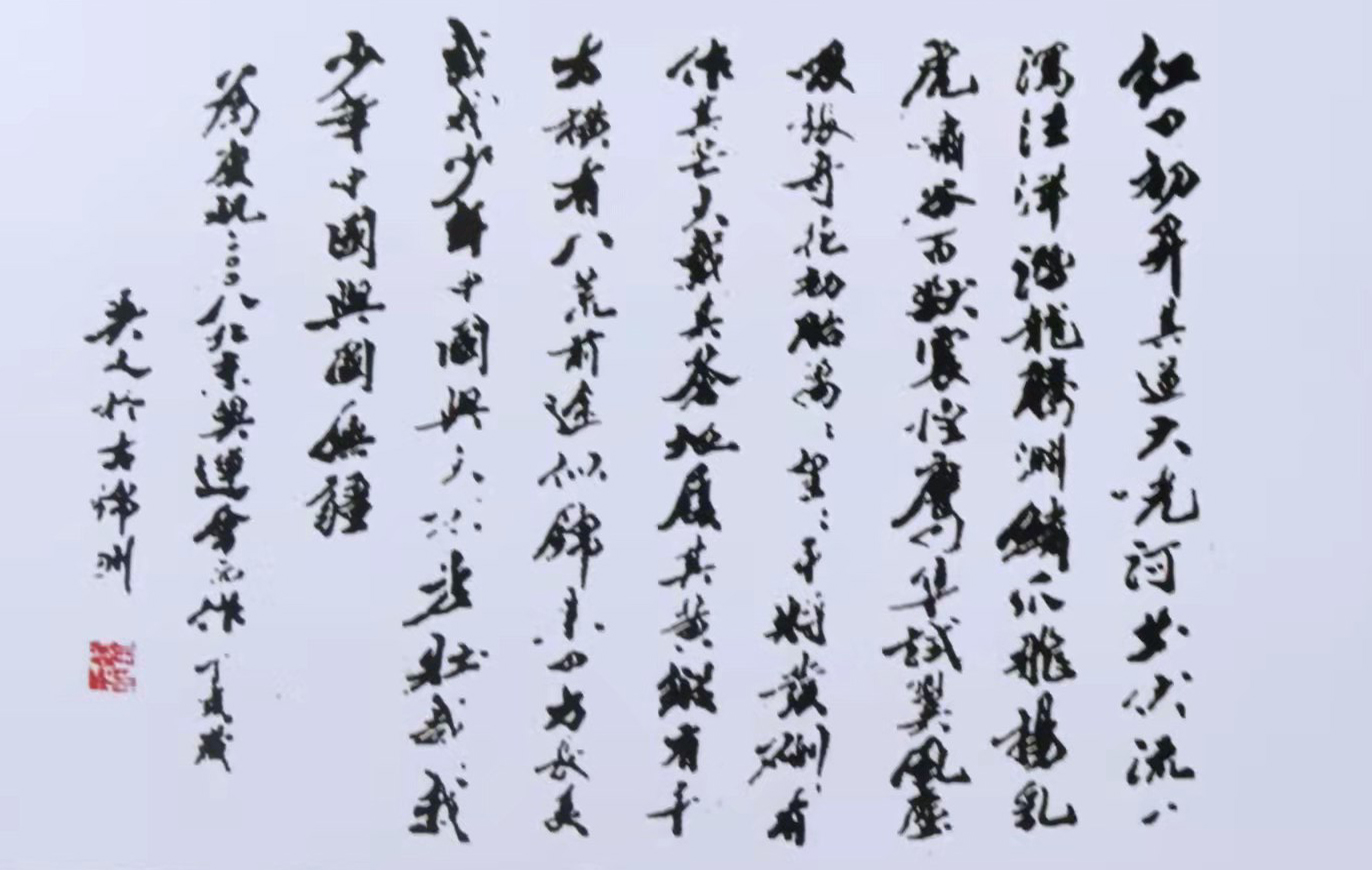 红日初昇其道大光河出伏流一
瀉汪洋潛龍騰淵鱗爪飛揚乳
虎嘯谷百獸震惶鷹隼試翼風塵
吸張奇花初胎矞：皇：干將發硎有
作其芒天戴其蒼地履其黃縱有千
古橫有八荒前途似錦來日方長美
哉我少年中國與天不老壯哉我
少年中國與國無疆
為慶祝二〇〇八北京奧運會而作丁亥歲
於古